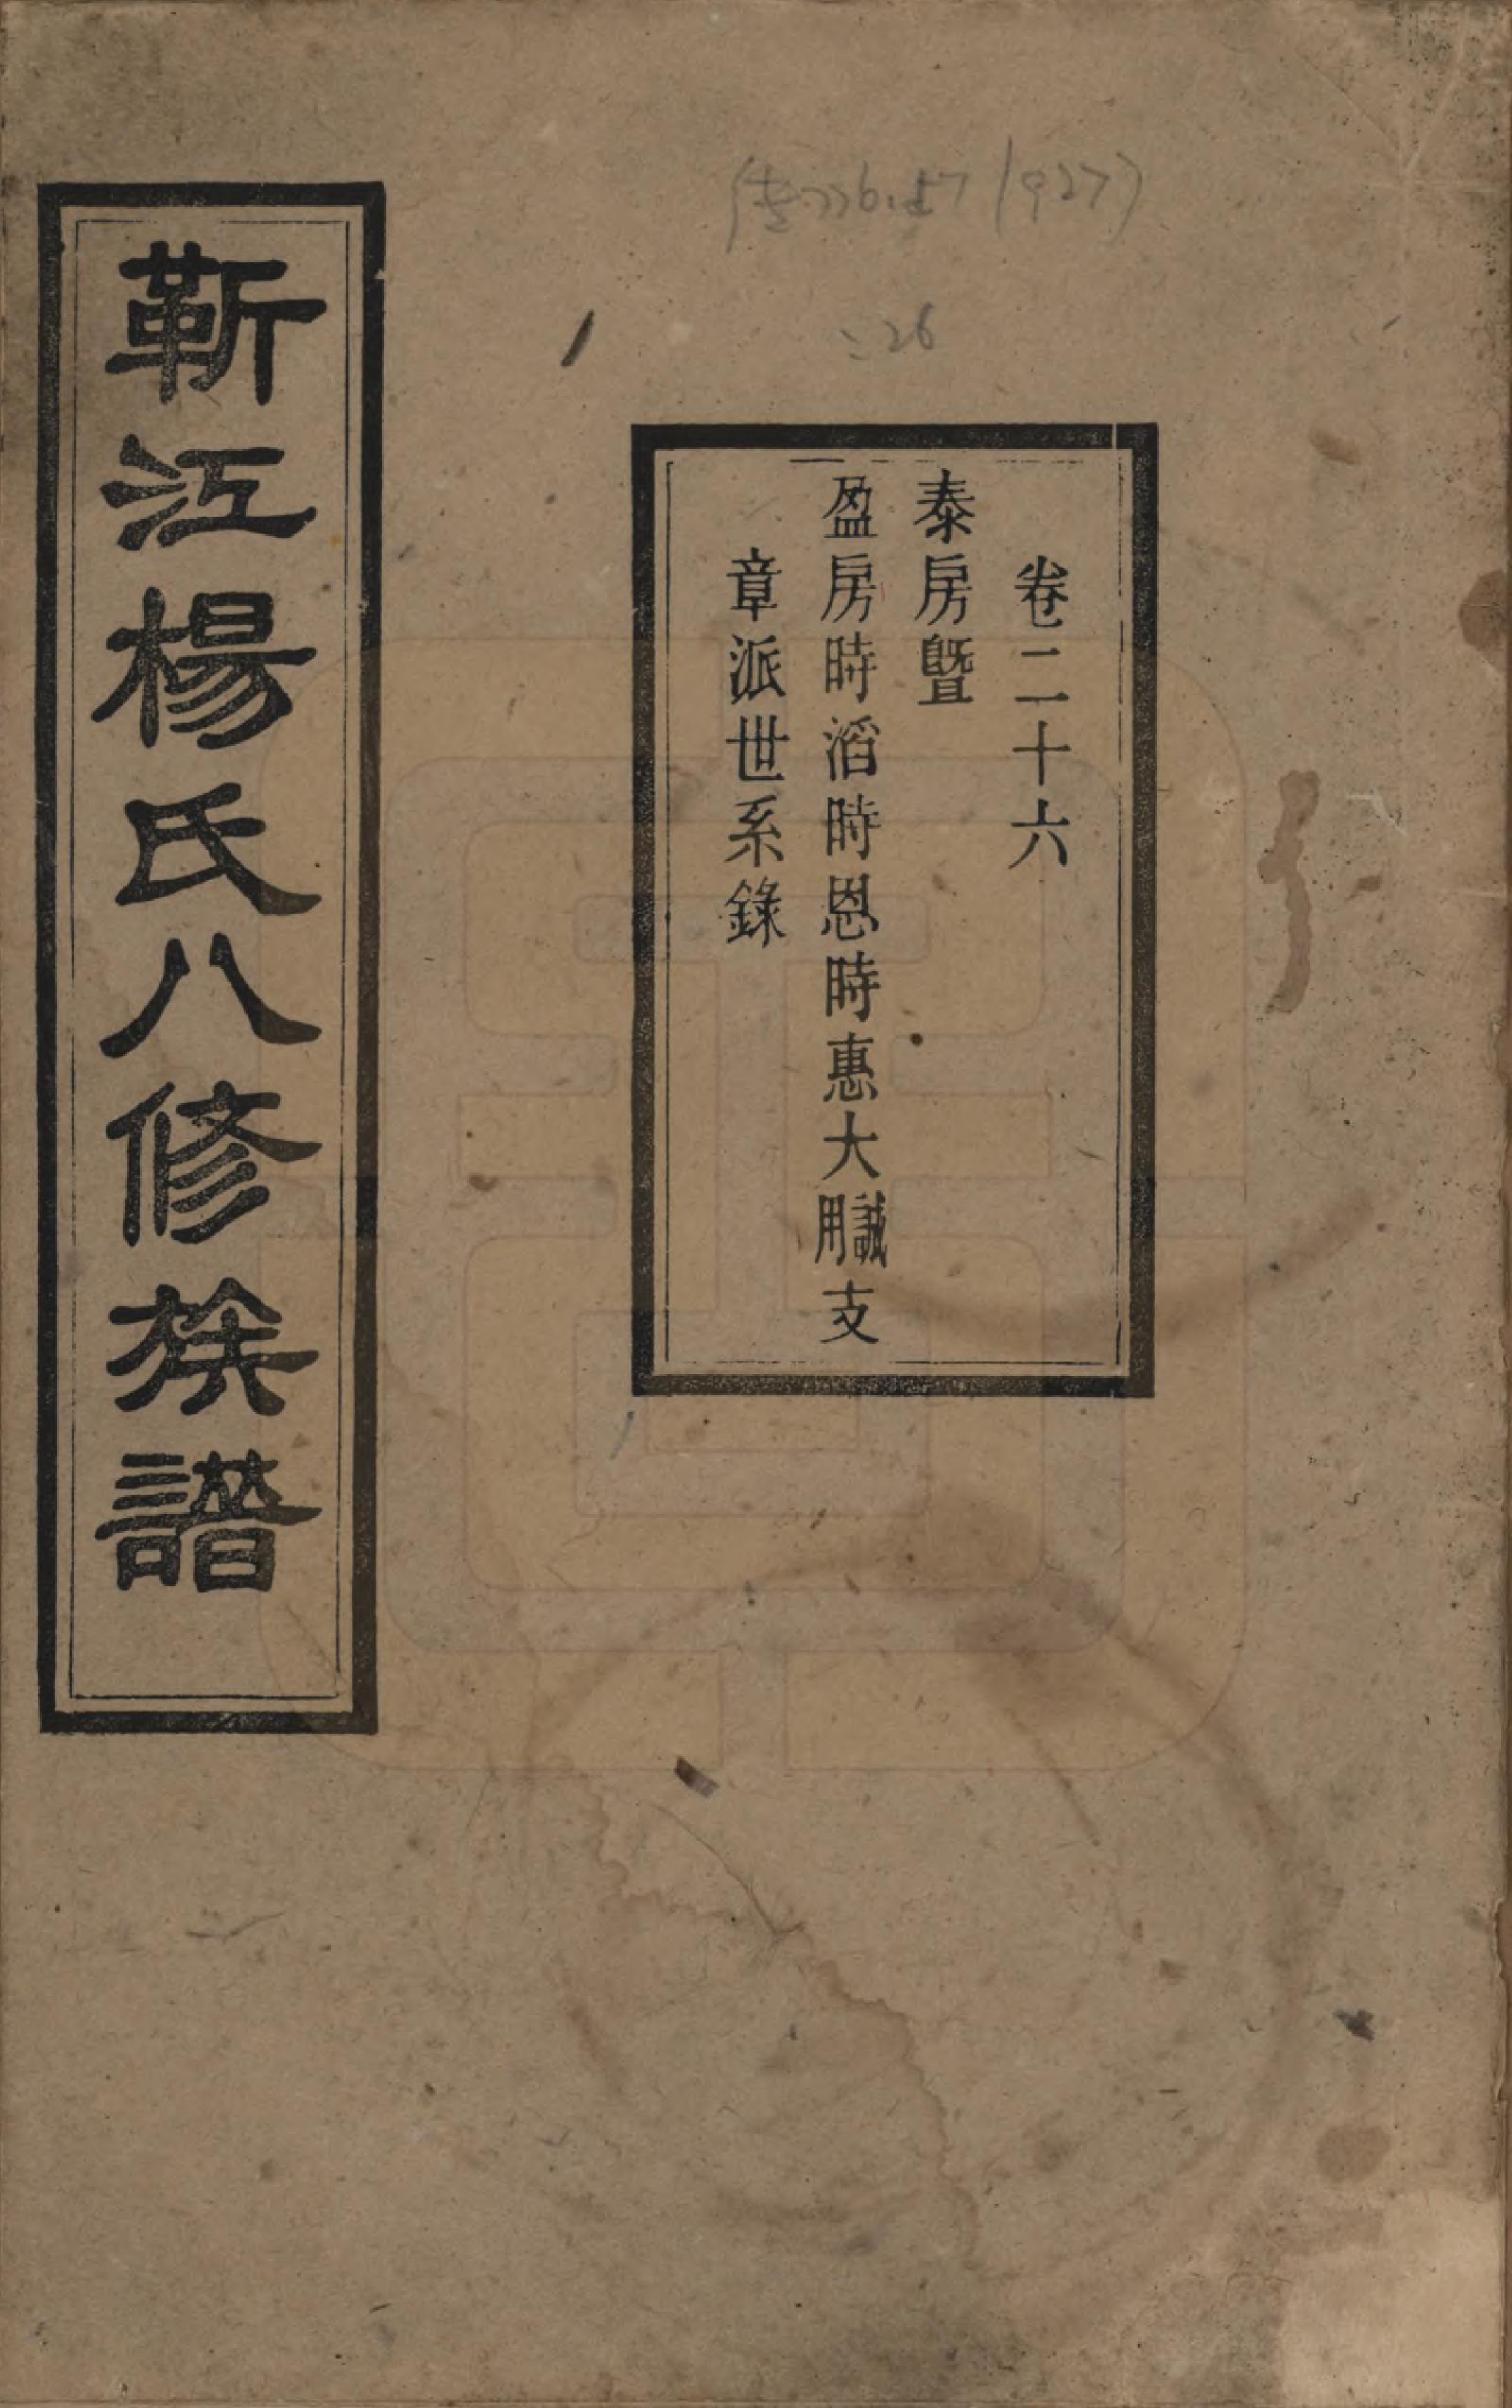 卷二十六
泰房暨
盈房時滔時恩時惠大誠用支
章派世系錄
靳江楊氏八修族譜
1927)
:26